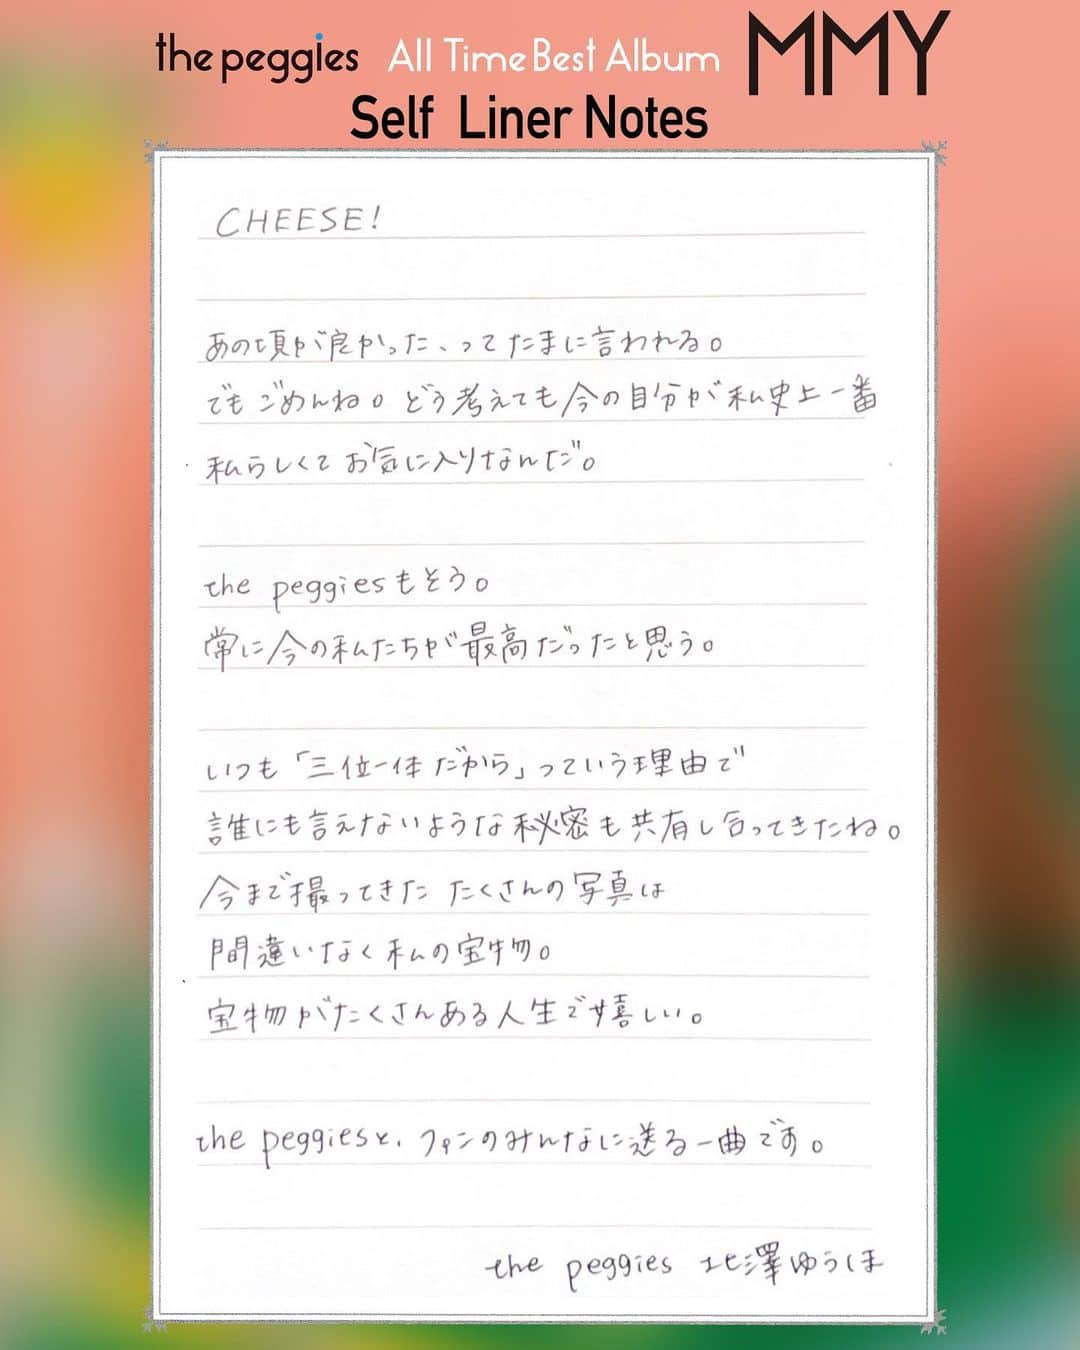 the peggies All Time Best Album MMY
Self Liner Notes
CHEESE!
あの頃が良かった、ってたまに言われる。
でもごめんね。どう考えても今の自分が私史上一番
私らしくてお気に入りなんだ。
the peggiesもそう。
常に今の私たちが最高だったと思う。
いつも「三位一体だから」っていう理由で
誰にも言えないような秘密も共有し合ってきたね。
今まで撮ってきた たくさんの写真は
間違いなく私の宝物。
宝物がたくさんある人生で嬉しい。
the peggiesと、ファンのみんなに送る一曲です。
the peggies 北澤ゆうほ